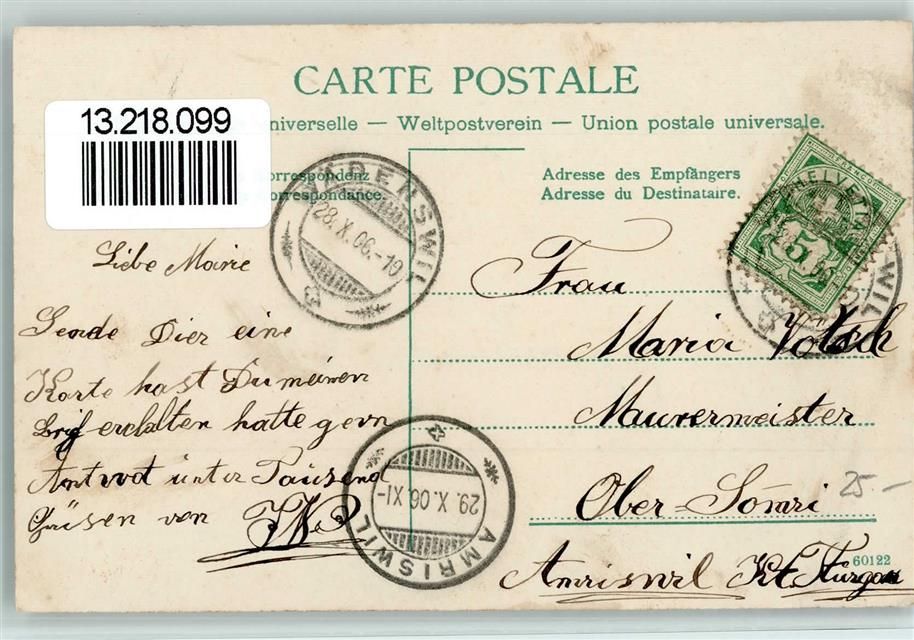 CARTE POSTALE
13.218.099
niverselle — Weltpostverein — Union postale universale.
orrespondenz
orrespondance.
Adresse des Empfängers
Adresse du Destinataire.
WÄDENSWIL
28.X.06.-10
HELVETIA
FRANCO
5
WIL
Liebe Marie
Sende Dier eine
Karte hast Du meinen
Brief erchalten hatte gern
Antwot unter Tausend
Grüsen von
Frau
Maria
Maurermeister
Ober-Somri
Amriswil Kt. Turgau
25.-
AMRISWIL
29.X.06 XI-
60122